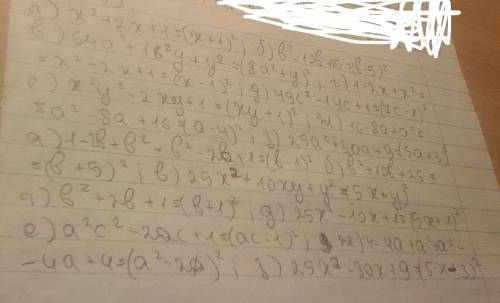 а) x²+2x+1=(x+1)²; б) b²-10b+25=(b-5)²
в) 64a²+16ay+y²=(8a+y)²; г) 1-2x+x²=
=x²-2x+1=(x-1)²; д) 49c²-14c+1=(7c-1)²
е) x²y²-2xy+1=(xy+1)²; ж) 16-8a+a²=
=a²-8a+16=(a-4)²; з) 25a²+30a+9=(5a+3)²
а) 1-2b+b²=b²-2b+1=(b-1)² б) b²+10b+25=
=(b+5)²; в) 25x²+10xy+y²=(5x+y)²
г) b²+2b+1=(b+1)²; д) 25x²-10x+1=(5x-1)²
е) a²c²-2ac+1=(ac-1)²; ж) 4-4a+a²=a²-
-4a+4=(a²-2)²; з) 25x²-30x+9=(5x-3)²